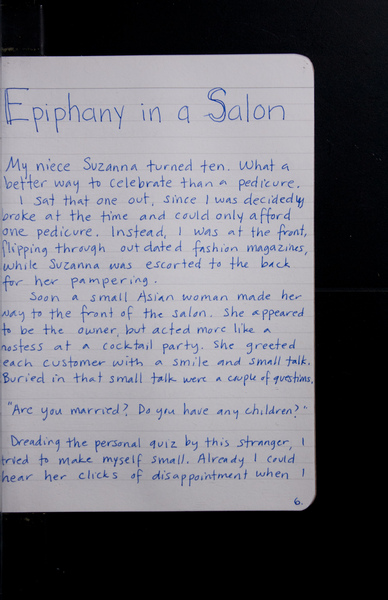 Epiphany in a Salon
My niece Suzanna turned ten. What a
better way to celebrate than a pedicure.
I sat that one out, since I was decidedly
broke at the time and could only afford
one pedicure. Instead, I was at the front,
flipping through outdated fashion magazines,
while Suzanna was escorted to the back
for her pampering.
Soon a small Asian woman made her
way to the front of the salon. She appeared
to be the owner, but acted more like a
hostess at a cocktail party. She greeted
each customer with a smile and small talk.
Buried in that small talk were a couple of questions,
"Are you married? Do you have any children?"
Dreading the personal quiz by this stranger, I
tried to make myself small. Already I could
hear her clicks of disappointment when I
6.